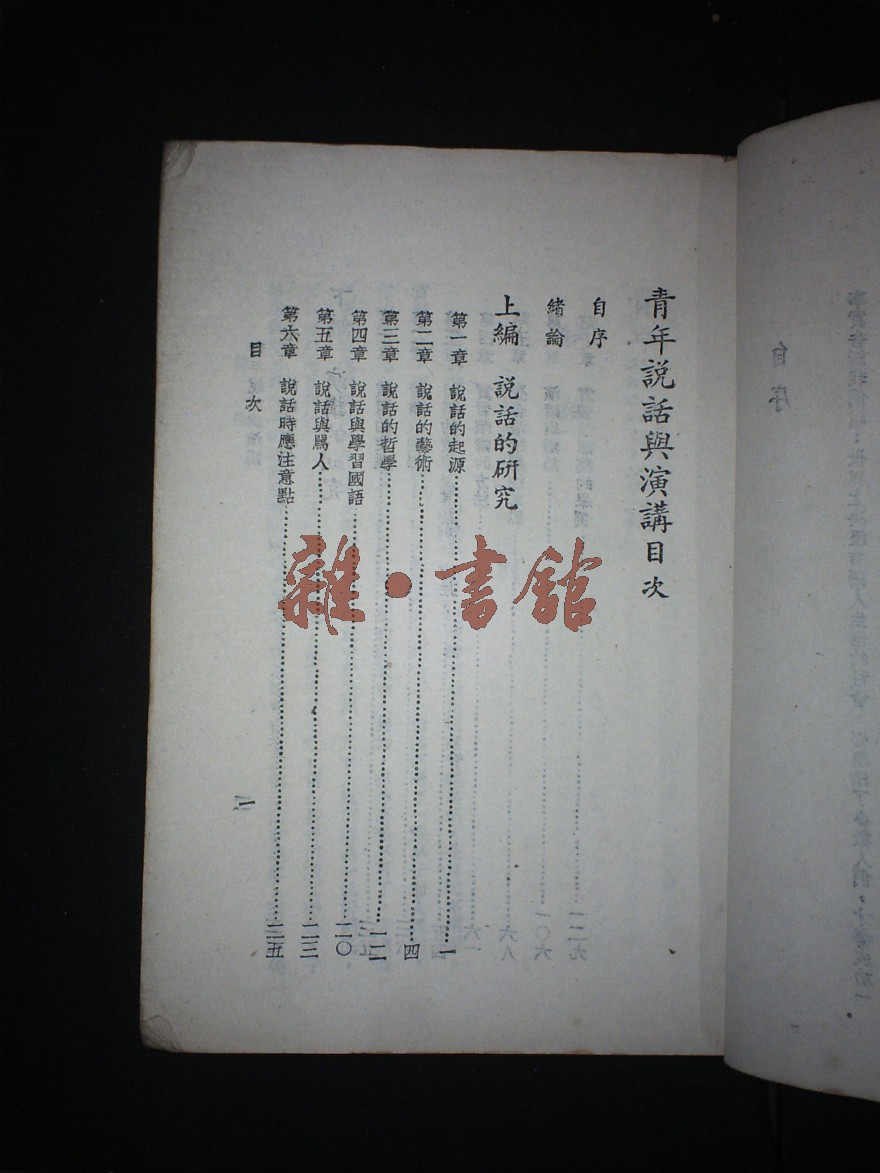 青年說話與演講目次
自序
緒論
上編 說話的研究
第一章 說話的起源……一
第二章 說話的藝術……四
第三章 說話的哲學……一二
第四章 說話與學習國語……二〇
第五章 說話與罵人……二三
第六章 說話時應注意點……二五
目次
一
雜·書館
自序